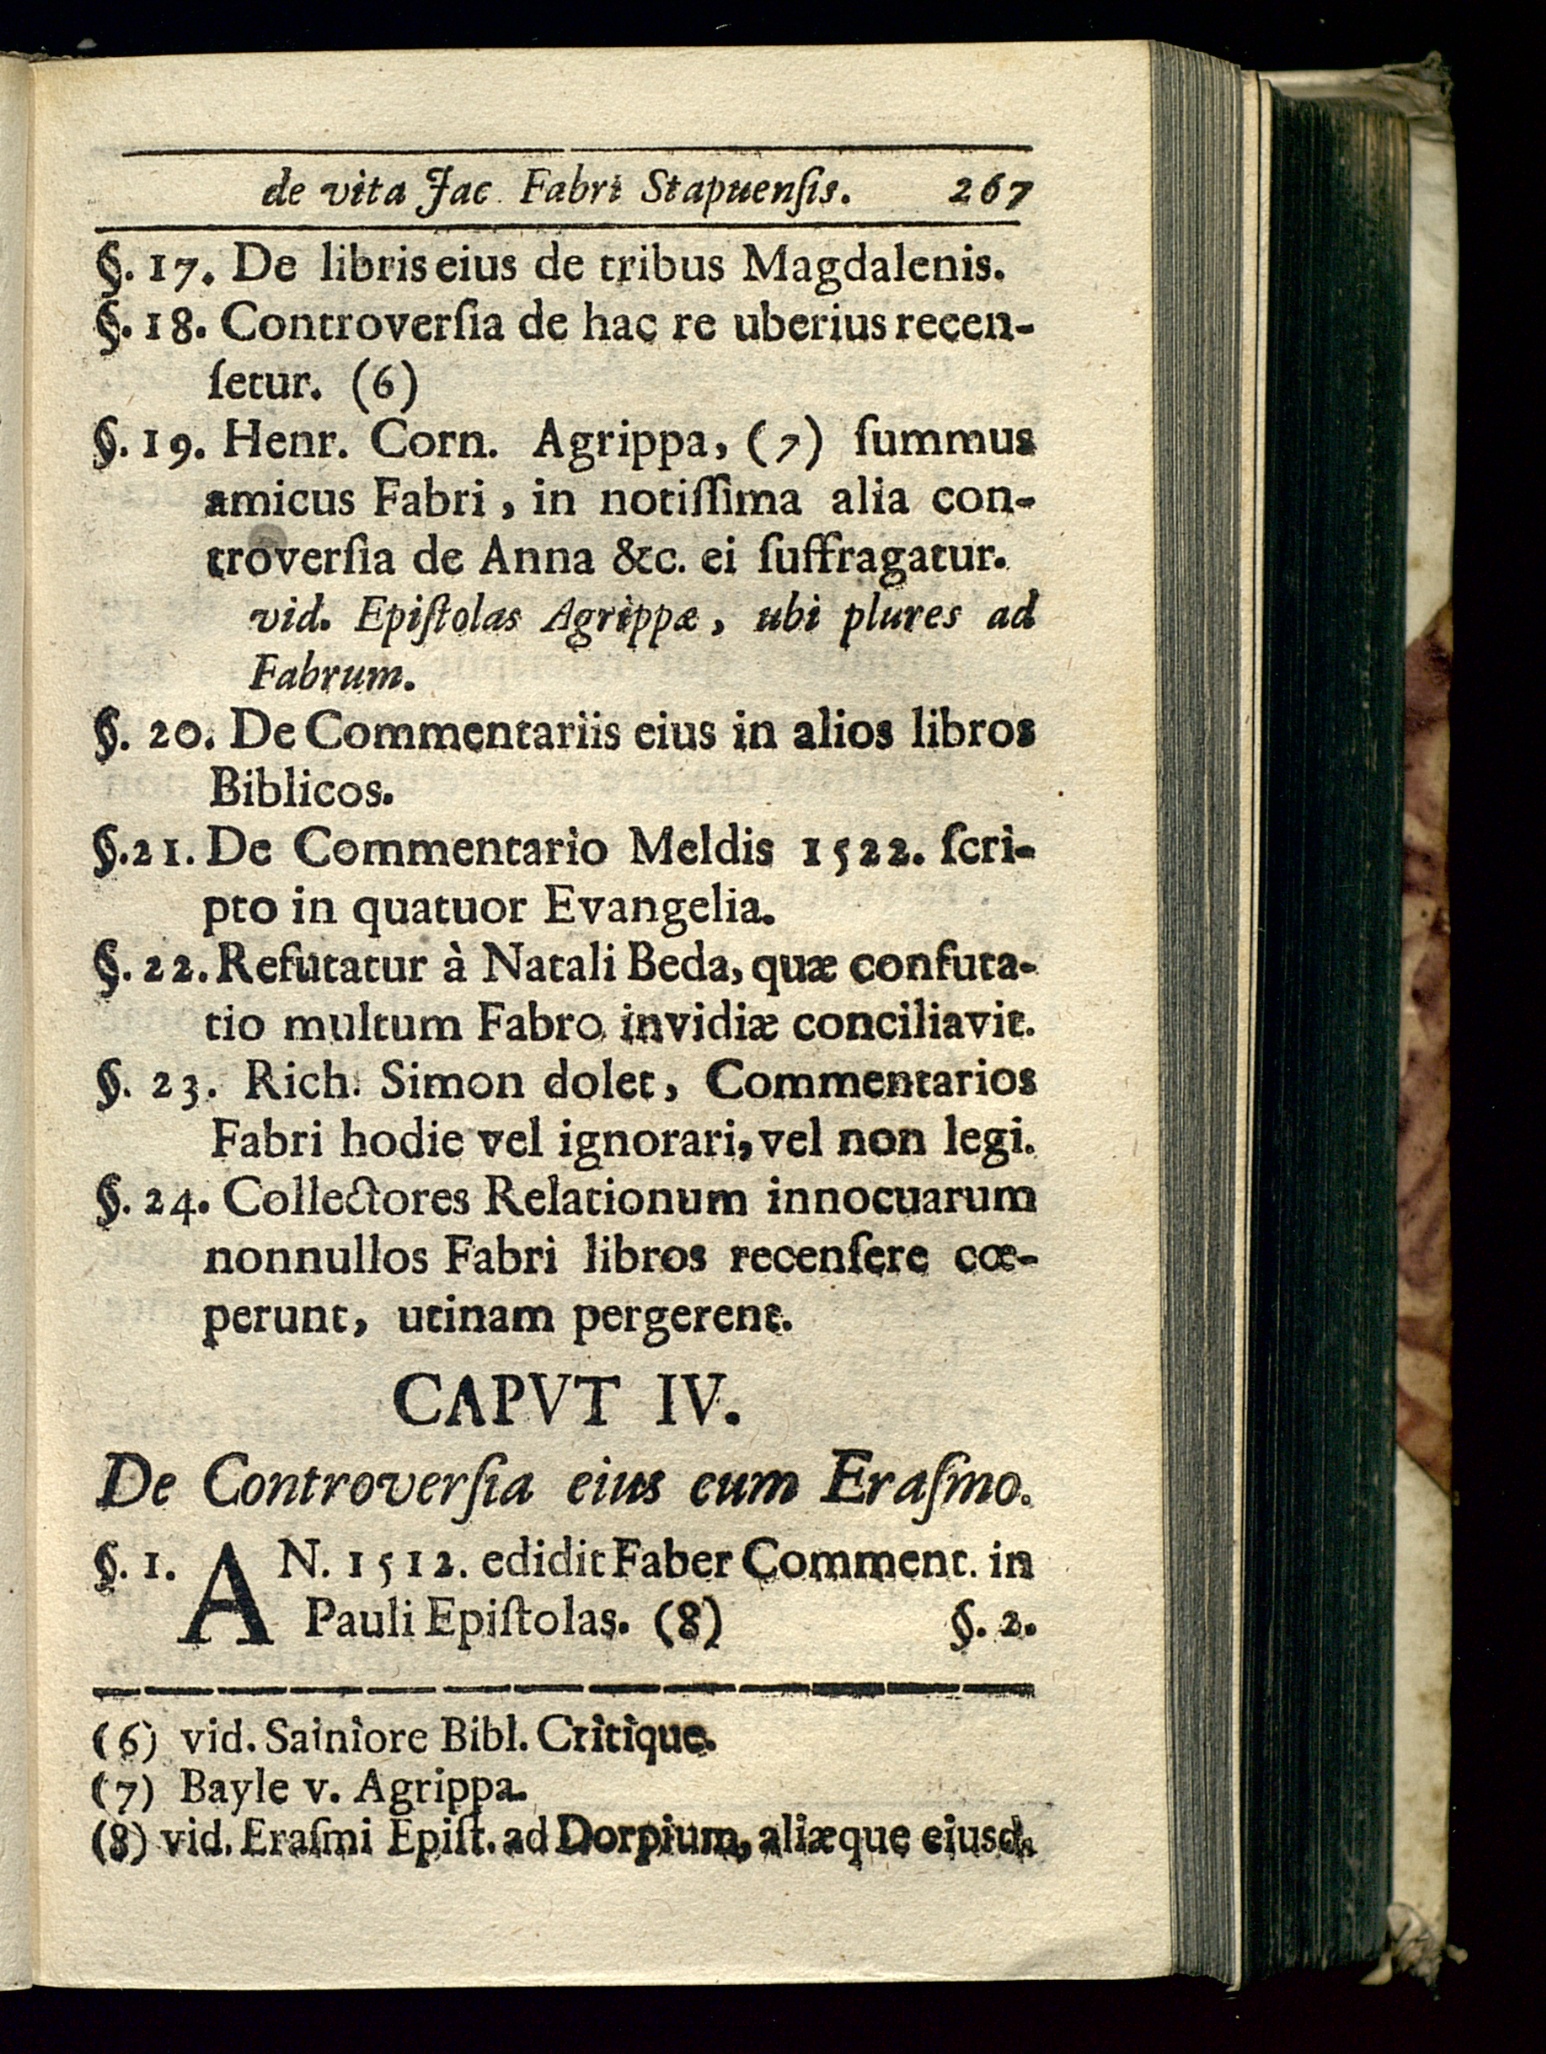 de vita Jac. Fabri Stapuenſis. 267
§. 17. De libris eius de tribus Magdalenis.
§. 18. Controverſia de hac re uberius recen-
ſetur. (6)
§. 19. Henr. Corn. Agrippa, (7) ſummus
amicus Fabri, in notiſſima alia con-
troverſia de Anna &c. ei ſuffragatur.
vid. Epiſtolas Agrippæ, ubi plures ad
Fabrum.
§. 20. De Commentariis eius in alios libros
Biblicos.
§. 21. De Commentario Meldis 1522. ſcri-
pto in quatuor Evangelia.
§. 22. Refutatur à Natali Beda, quæ confuta-
tio multum Fabro invidiæ conciliavit.
§. 23. Rich. Simon dolet, Commentarios
Fabri hodie vel ignorari, vel non legi.
§. 24. Collectores Relationum innocuarum
nonnullos Fabri libros recenſere cœ-
perunt, utinam pergerent.
CAPVT IV.
De Controverſia eius cum Eraſmo.
§. 1. AN. 1512. edidit Faber Comment. in
Pauli Epiſtolas. (8) §. 2.
(6) vid. Sainiore Bibl. Critique.
(7) Bayle v. Agrippa.
(8) vid. Eraſmi Epiſt. ad Dorpium, aliæque eiusd.